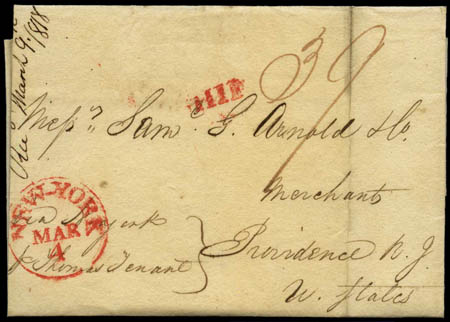 March 9th
1818
39
SHIP
Mess.rs Sam. G. Arnold & Co.
Merchants
Providence R. I.
U. States
NEW-YORK
MAR
4
Via New york
p Thomas Tenant